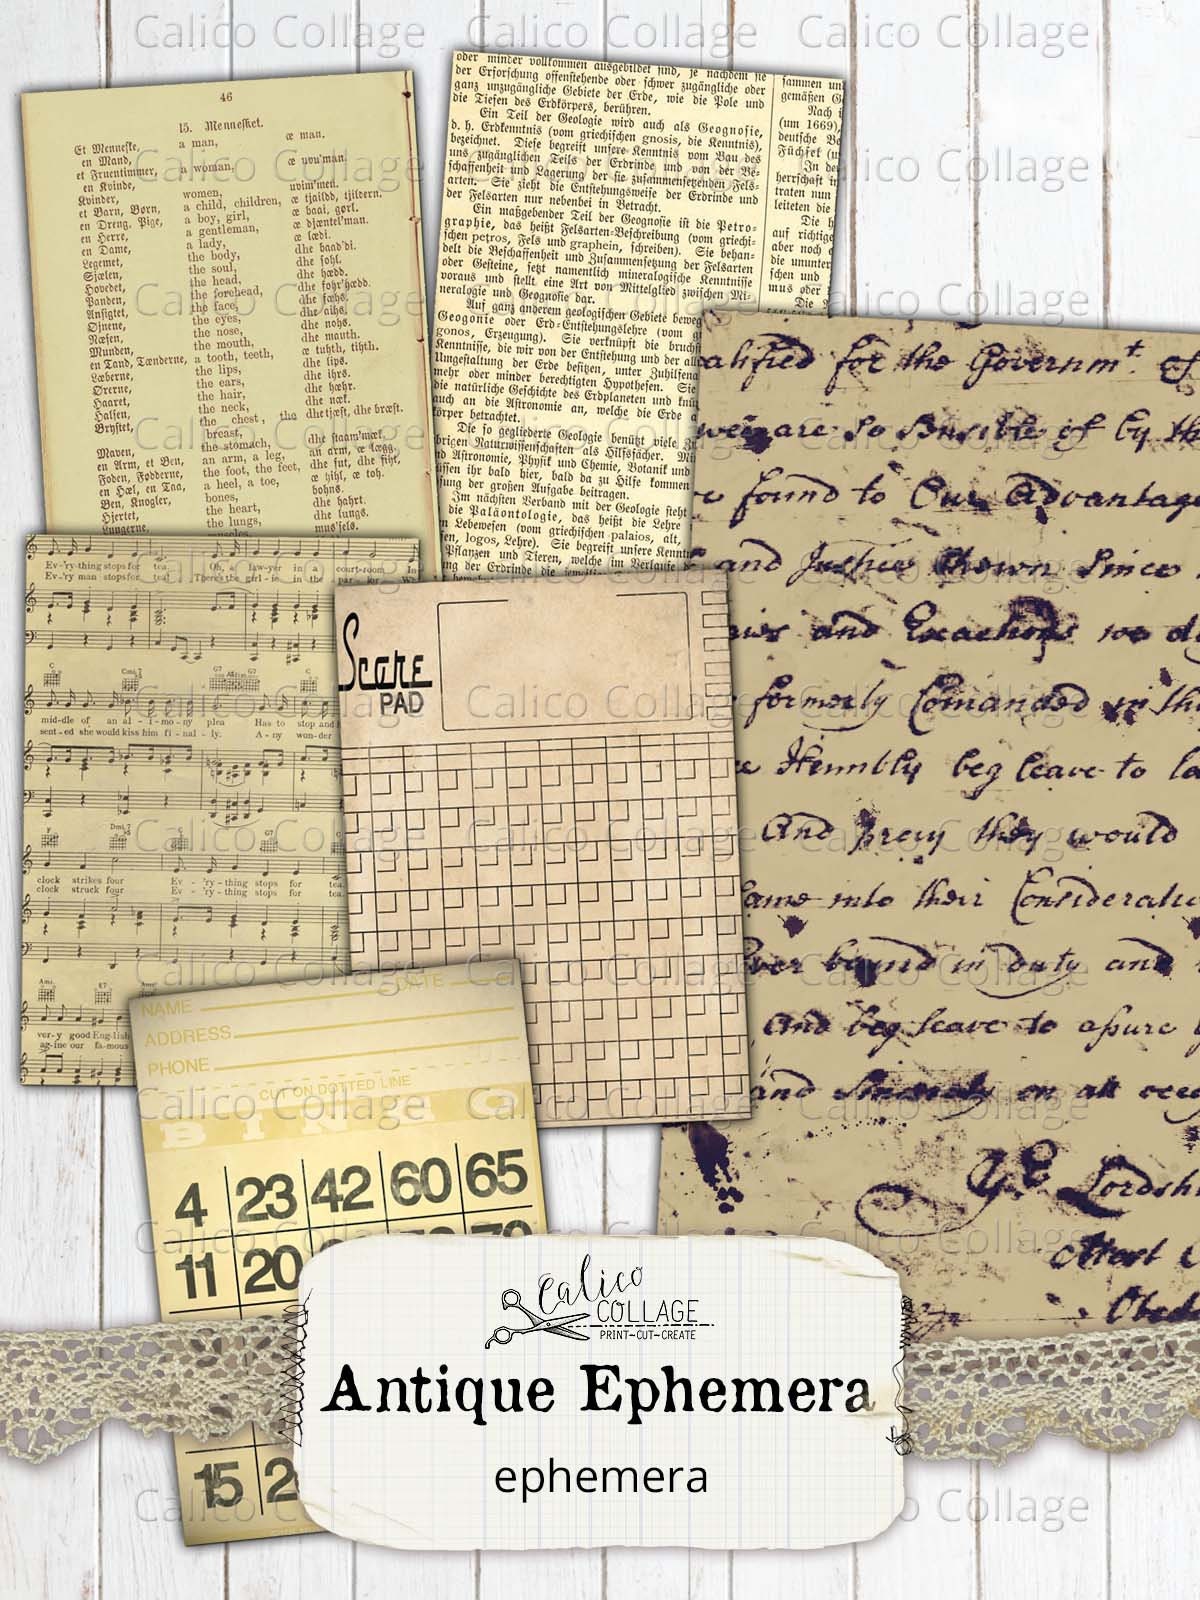 46
15. Mennesket.
Et Menneske, a man, æ man.
en Mand,
et Fruentimmer, a woman, æ vou'man.
en Kvinde,
Kvinder, women, uvim'men.
et Barn, Børn, a child, children, æ tjaild, tjildern.
en Dreng. Pige, a boy, girl, æ baai, gørl.
en Herre, a gentleman, æ djæntel'man.
en Dame, a lady, æ lædi.
Legemet, the body, dhe baad'di.
Sjælen, the soul, dhe sohl.
Hovedet, the head, dhe hædd.
Panden, the forehead, dhe fohr'hædd.
Ansigtet, the face, dhe fæhs.
Øjnene, the eyes, dhe aihs.
Næsen, the nose, dhe nohs.
Munden, the mouth, dhe mauth.
en Tand, Tænderne, a tooth, teeth, æ tuhth, tihth.
Læberne, the lips, dhe lips.
Ørerne, the ears, dhe ihrs.
Haaret, the hair, dhe hæhr.
Halsen, the neck, dhe næk.
Brystet, the chest, the dhe tjæst, dhe bræst.
breast,
Maven, the stomach, dhe staam'mæk.
en Arm, et Ben, an arm, a leg, an arm, æ lægg.
Foden, Fødderne, the foot, the feet, dhe fut, dhe fiht.
en Hæl, en Taa, a heel, a toe, æ hihl, æ toh.
Ben, Knogler, bones, bohns.
Hjertet, the heart, dhe hahrt.
Lungerne, the lungs, dhe lungs.
oder minder vollkommen ausgebildet sind, je nachdem sie
der Erforschung offenstehende oder schwer zugängliche oder
ganz unzugängliche Gebiete der Erde, wie die Pole und
die Tiefen des Erdkörpers, berühren.
Ein Teil der Geologie wird auch als Geognosie,
d. h. Erdkenntnis (vom griechischen gnosis, die Kenntnis),
bezeichnet. Diese begreift unsere Kenntnis vom Bau des
uns zugänglichen Teils der Erdrinde und von der Be-
schaffenheit und Lagerung der sie zusammensetzenden Fels-
arten. Sie zieht die Entstehungsweise der Erdrinde und
der Felsarten nur nebenbei in Betracht.
Ein maßgebender Teil der Geognosie ist die Petro-
graphie, das heißt Felsarten-Beschreibung (vom griechi-
schen petros, Fels und graphein, schreiben). Sie behan-
delt die Beschaffenheit und Zusammensetzung der Felsarten
oder Gesteine, setzt namentlich mineralogische Kenntnisse
voraus und stellt eine Art von Mittelglied zwischen Mi-
neralogie und Geognosie dar.
Auf ganz anderem geologischen Gebiete beweg
Geogonie oder Erd-Entstehungslehre (vom g
gonos, Erzeugung). Sie verknüpft die bruchst
Kenntnisse, die wir von der Entstehung und der all
Umgestaltung der Erde besitzen, unter Zuhilfena
mehr oder minder berechtigten Hypothesen. Sie
die natürliche Geschichte des Erdplaneten und knü
auch an die Astronomie an, welche die Erde a
körper betrachtet.
Die so gegliederte Geologie benützt viele Zw
brigen Naturwissenschaften als Hilfsfächer. Mi
nd Astronomie, Physik und Chemie, Botanik und
üssen ihr bald hier, bald da zu Hilfe kommen
sung der großen Aufgabe beitragen.
Im nächsten Verband mit der Geologie steht
die Paläontologie, das heißt die Lehre
n Lebewesen (vom griechischen palaios, alt,
en, logos, Lehre). Sie begreift unsere Kenntn
Pflanzen und Tieren, welche im Verlaufe
sammen un
gemäßen G
Nach i
(um 1669),
deutsche Bo
Füchsel (u
In de
herrschaft in
traten nun
leiteten die
Die h
auf richtige
aber noch
die ununter
schen und
mus oder
Die
alified for the Governmt. of
found to Our Advantage
and Justice Shown Since
aws and Exactions we d
formerly Comanded in th
Humbly beg leave to la
And pray they would
ame into their Consideratio
ver bound in duty and
And beg leave to assure
and Sincerely on all occ
Lordsh
Most
Obed
Ev-'ry-thing stops for tea. Oh, a law-yer in a court-room In
Ev-'ry man stops for tea! There's the girl is in the par lor
C Cmi.7 G7 C
mid-dle of an al-i-mo-ny plea Has to stop and
sent-ed she would kiss him fi-nal-ly. A-ny won-der
F Dmi.7 C G7
clock strikes four Ev-'ry-thing stops for tea.
clock struck four Ev-'ry-thing stops for tea.
Ami. G7
ver-y good Eng-lish
ag-ine our fa-mous
Score
PAD
NAME DATE
ADDRESS
PHONE
CUT ON DOTTED LINE
B I N G O
4 23 42 60 65
11 20
15
Calico
COLLAGE
PRINT-CUT-CREATE
Antique Ephemera
ephemera
Calico Collage